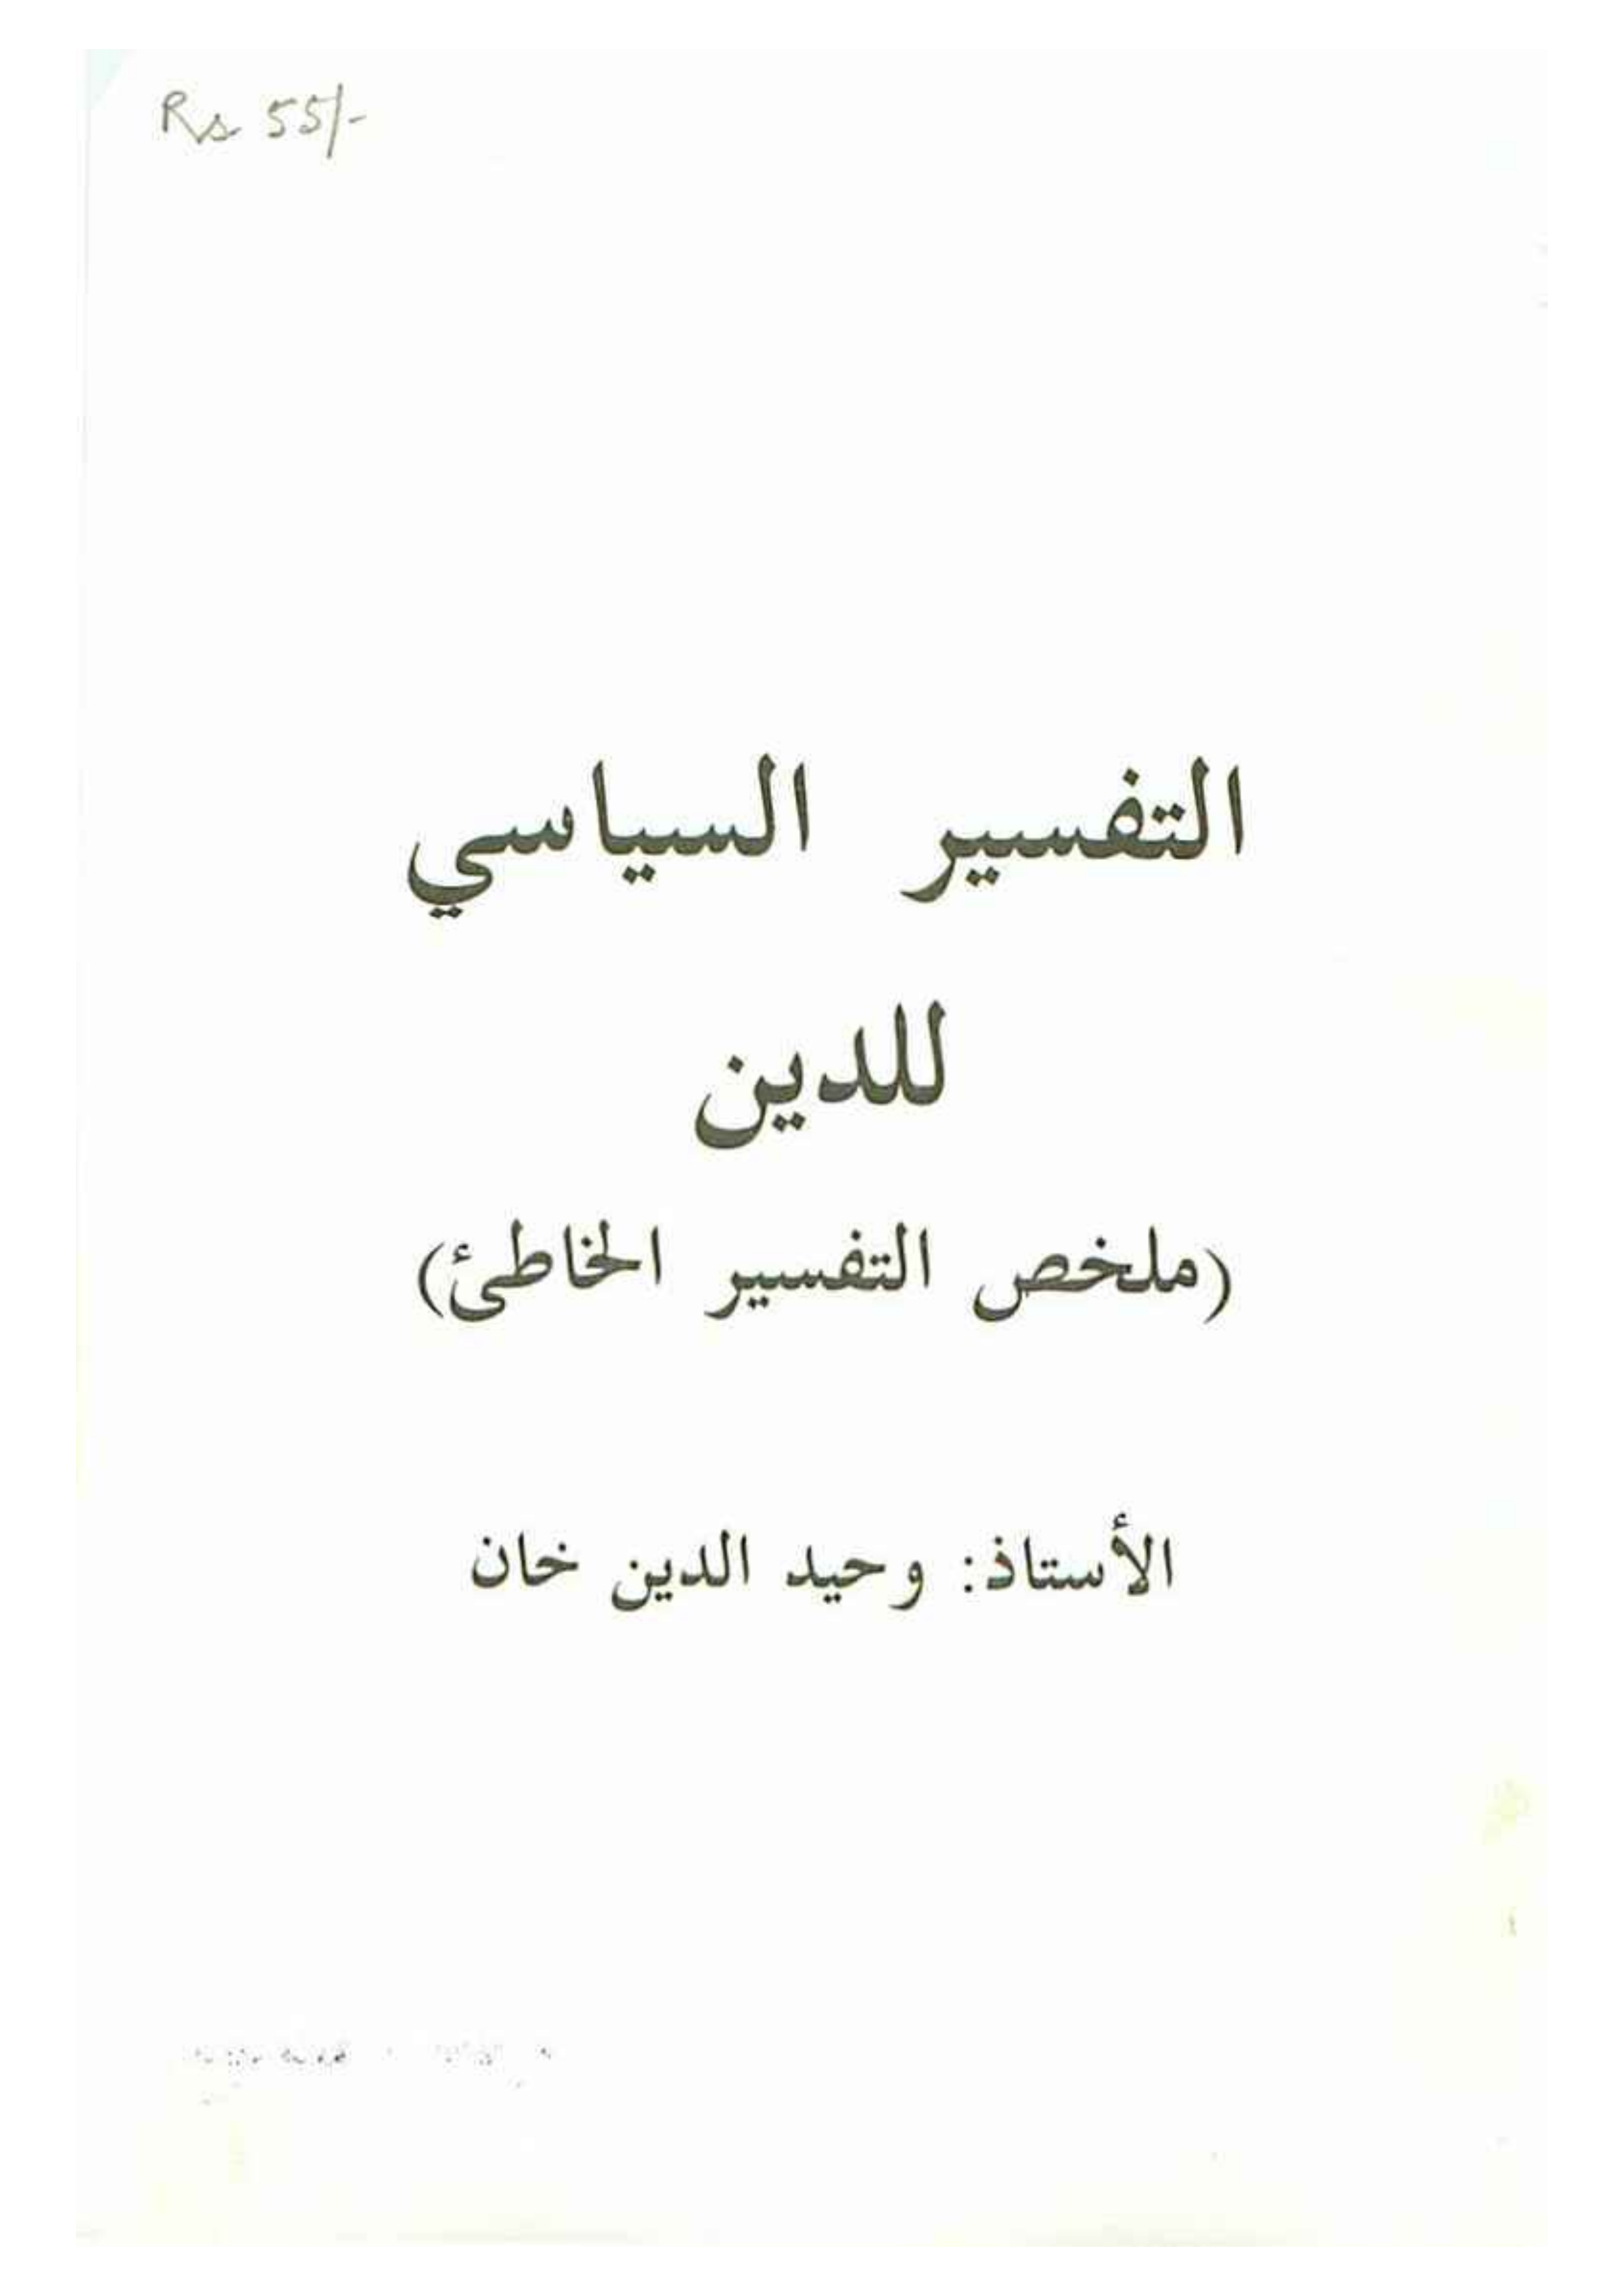 Rs 55/-
التفسير السياسي
للدين
(ملخص التفسير الخاطئ)
الأستاذ: وحيد الدين خان